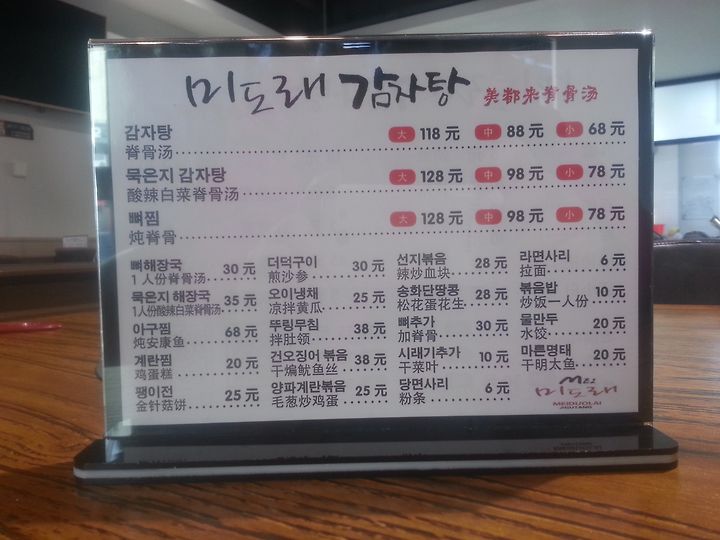 미도래 감자탕 美都来脊骨汤
감자탕 大 118 元 中 88 元 小 68 元
脊骨汤
묵은지 감자탕 大 128 元 中 98 元 小 78 元
酸辣白菜脊骨汤
뼈찜 大 128 元 中 98 元 小 78 元
炖脊骨
뼈해장국 30 元
1 人份脊骨汤
묵은지 해장국 35 元
1人份酸辣白菜脊骨汤
아구찜 68 元
炖安康鱼
계란찜 20 元
鸡蛋糕
팽이전 25 元
金针菇饼
더덕구이 30 元
煎沙参
오이냉채 25 元
凉拌黄瓜
뚜링무침 38 元
拌肚领
건오징어 볶음 38 元
干煸鱿鱼丝
양파계란볶음 25 元
毛葱炒鸡蛋
선지볶음 28 元
辣炒血块
송화단땅콩 28 元
松花蛋花生
뼈추가 30 元
加脊骨
시래기추가 10 元
干菜叶
당면사리 6 元
粉条
라면사리 6 元
拉面
볶음밥 10 元
炒饭一人份
물만두 20 元
水饺
마른명태 20 元
干明太鱼
미도래
MEIDUOLAI
JIGUTANG